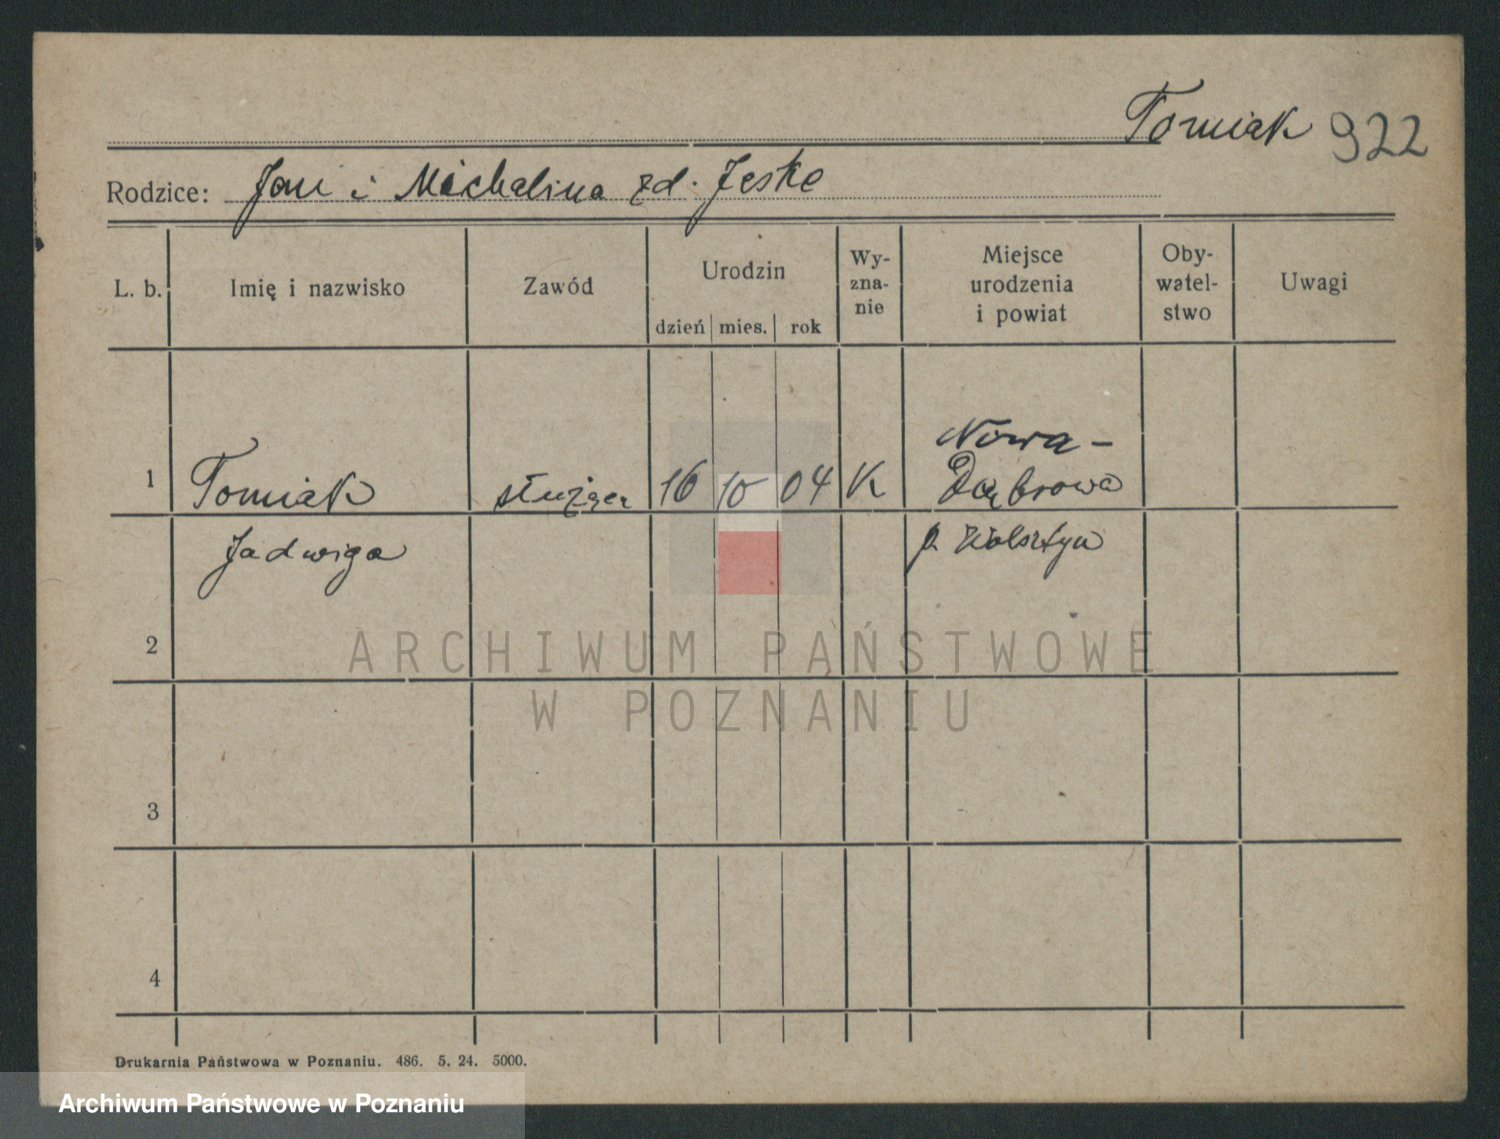 Tomiak 922
Rodzice: Jan i Michalina zd. Jeske
L. b. Imię i nazwisko Zawód Urodzin dzień mies. rok Wy-zna-nie Miejsce urodzenia i powiat Oby-watel-stwo Uwagi
Nowa-
1 Tomiak służąca 16 10 04 K Dąbrowa
Jadwiga p. Wolsztyn
2
ARCHIWUM PAŃSTWOWE
W POZNANIU
3
4
Drukarnia Państwowa w Poznaniu. 486. 5. 24. 5000.
Archiwum Państwowe w Poznaniu